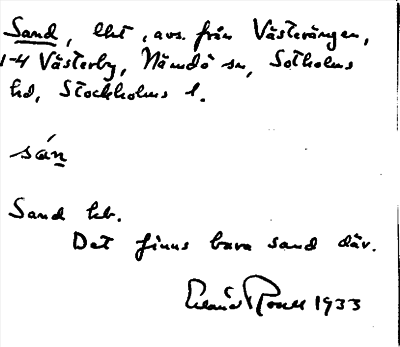 Sand, lht, avs. från Västerängen,
1-4 Västerby, Nämdö sn, Sotholms
hd, Stockholms l.
sán
Sand lht.
Det finns bara sand där.
1933